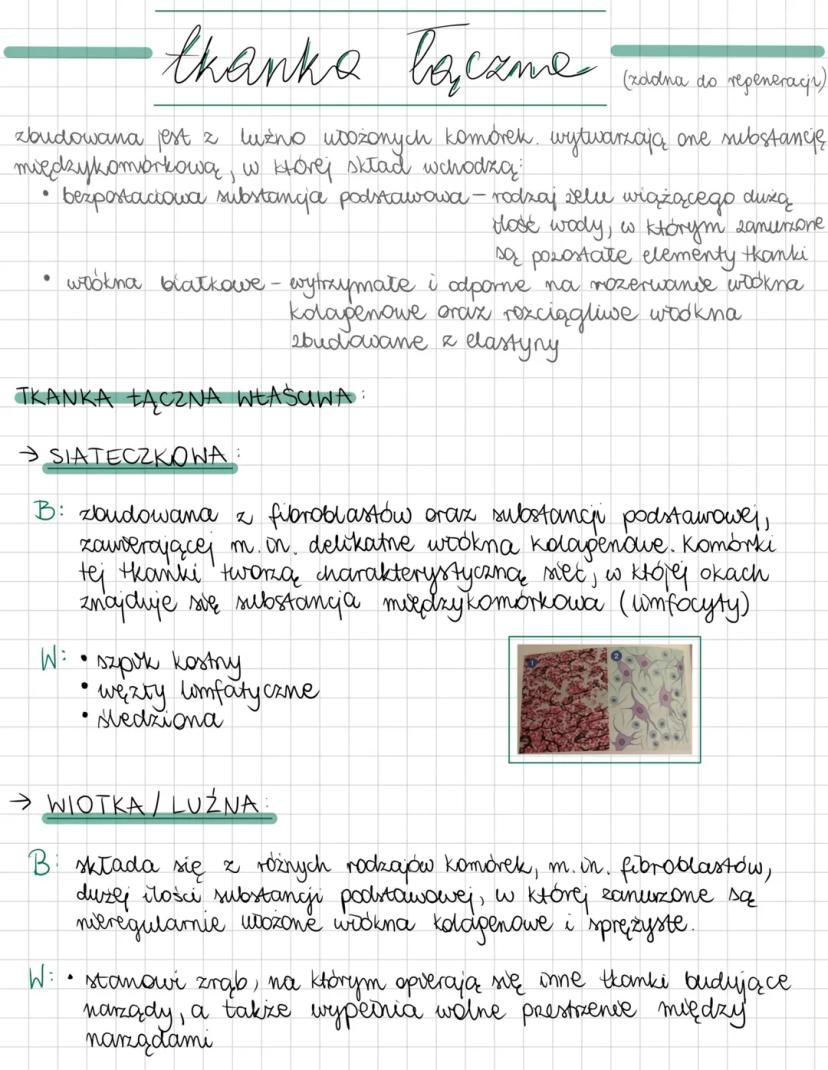 tkanka łączna
(zdolna do regeneracji)
zbudowana jest z luźno ułożonych komórek. wytwarzają one substancję
międzykomórkową, w której skład wchodzą:
• bezpostaciowa substancja podstawowa – rodzaj żelu wiążącego dużą
ilość wody, w którym zanurzone
są pozostałe elementy tkanki
• włókna białkowe – wytrzymałe i odporne na rozerwanie włókna
kolagenowe oraz rozciągliwe włókna
zbudowane z elastyny
TKANKA ŁĄCZNA WŁAŚCIWA:
→ SIATECZKOWA:
B: zbudowana z fibroblastów oraz substancji podstawowej,
zawierającej m.in. delikatne włókna kolagenowe. Komórki
tej tkanki tworzą charakterystyczną sieć, w której okach
znajduje się substancja międzykomórkowa (limfocyty)
W: • szpik kostny
• węzły limfatyczne
• śledziona
1 2
→ WIOTKA / LUŹNA:
B: składa się z różnych rodzajów komórek, m.in. fibroblastów,
dużej ilości substancji podstawowej, w której zanurzone są
nieregularnie ułożone włókna kolagenowe i sprężyste.
W: • stanowi zrąb, na którym opierają się inne tkanki budujące
narządy, a także wypełnia wolne przestrzenie między
narządami